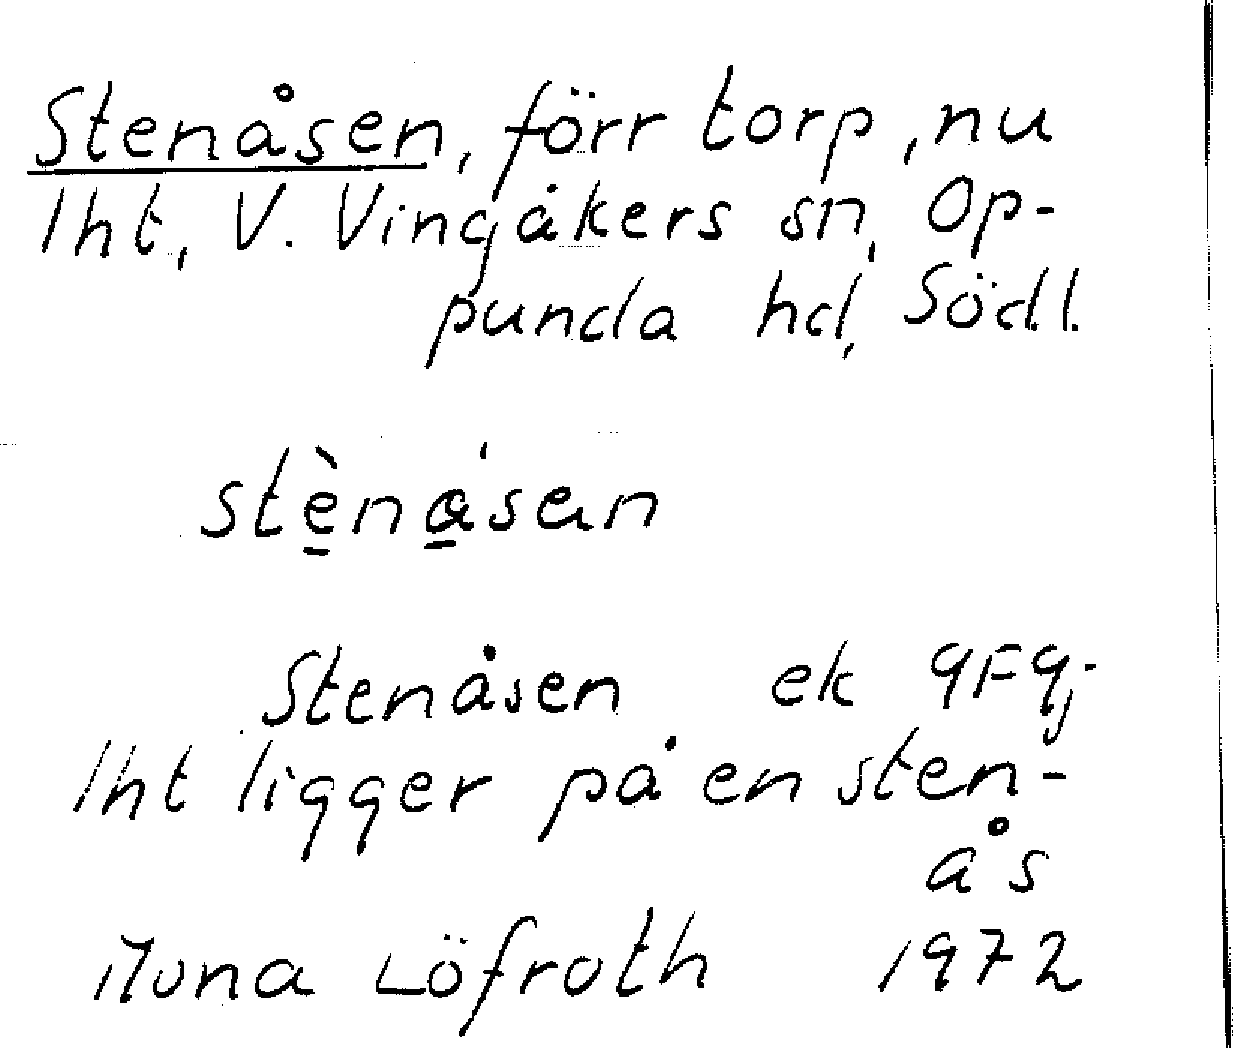 Stenåsen, förr torp, nu
lht, V. Vingåkers sn, Op-
punda hd, Södl.
stènåsen
Stenåsen ek 9F9j
lht ligger på en sten-
ås
Mona Löfroth 1972